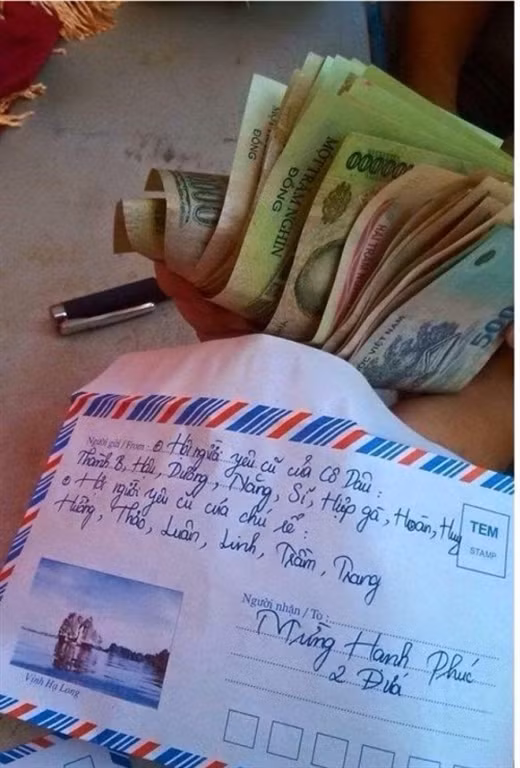 MỘT
ĐỒNG
000
MỘT TRĂM NGHÌN
ĐỒNG
100000
HAI TRĂM
VIỆT NAM
500
Người gửi / From : • Hội người yêu cũ của Cô Dâu :
Thành B, Hậu, Dưỡng, Năng, Sĩ, Hiệp gà, Hoàn, Huy
• Hội người yêu cũ của chú rể :
Hường, Thảo, Luân, Linh, Trầm, Trang
TEM
STAMP
Người nhận / To :
Mừng Hạnh Phúc
2 Đứa
Vịnh Hạ Long